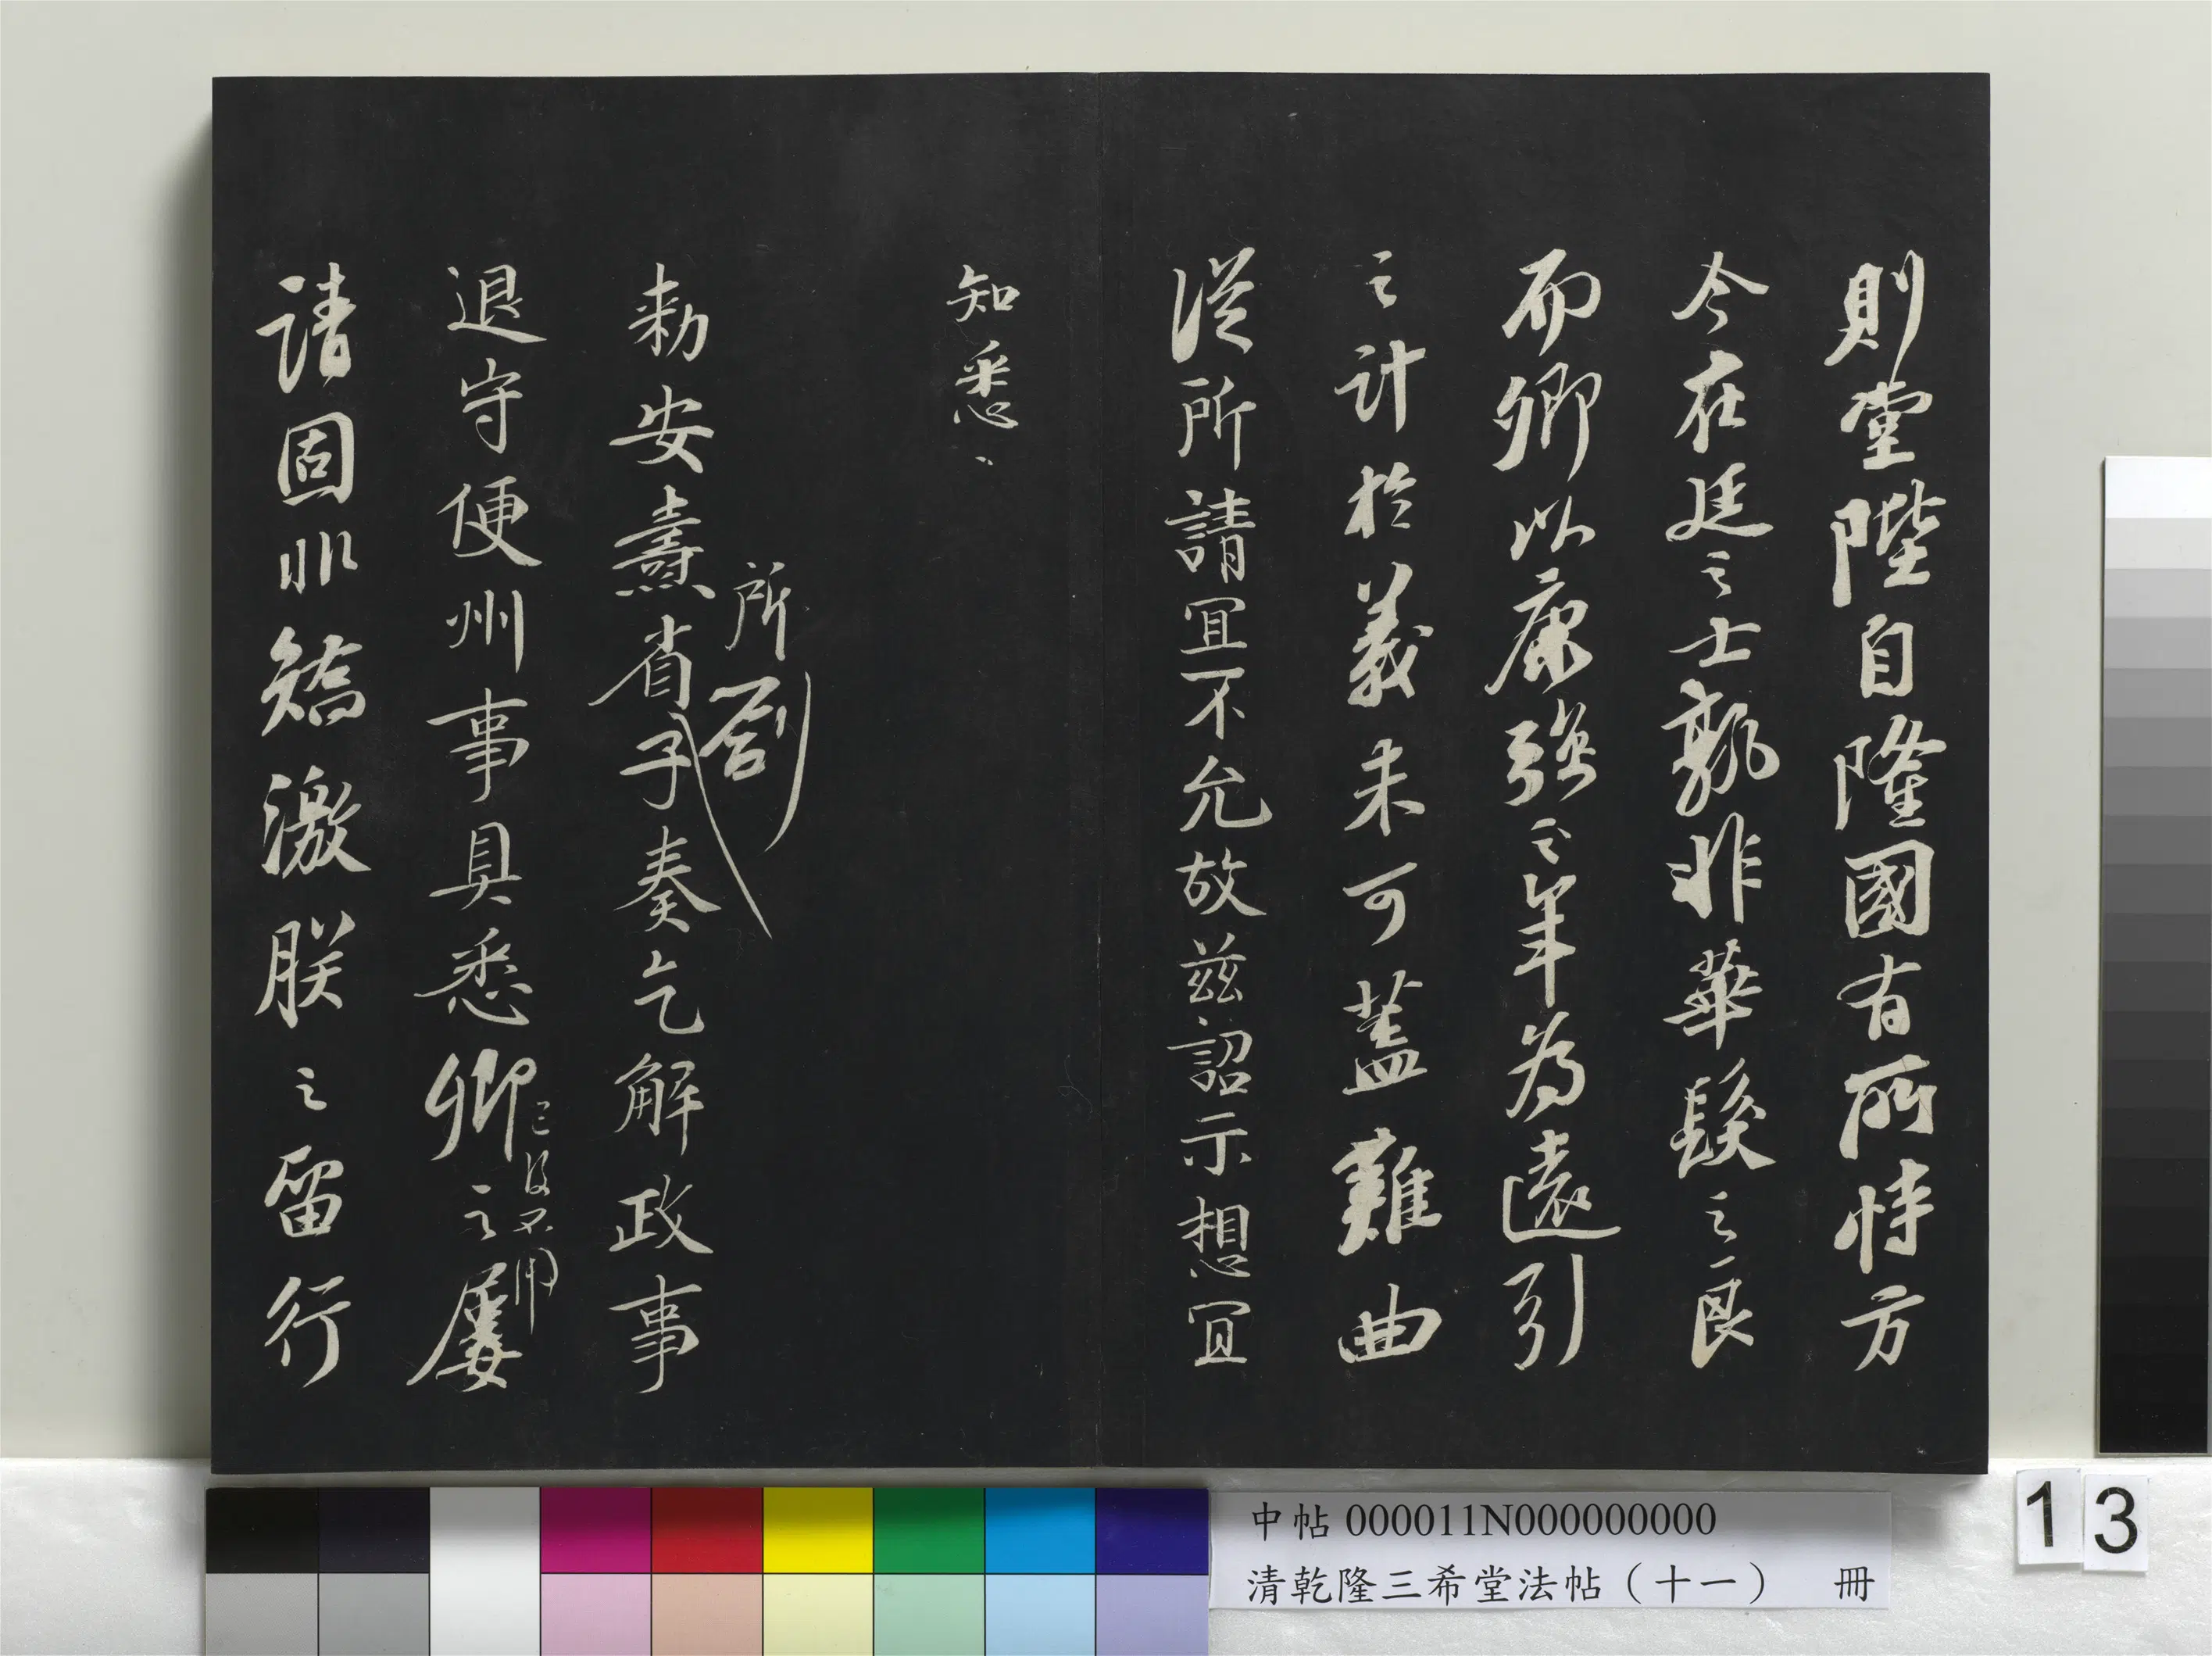 則堂陛自隆國有所恃方
今在廷之士孰非華髮之良
而卿以康強之年為遠引
之計於義未可蓋難曲
從所請宜不允故茲詔示想宜
知悉
所劄
勑安燾省子奏乞解政事
退守便州事具悉卿之屢
已後不用
請固非矯激朕之留行
中帖 000011N000000000
清乾隆三希堂法帖（十一） 冊
13